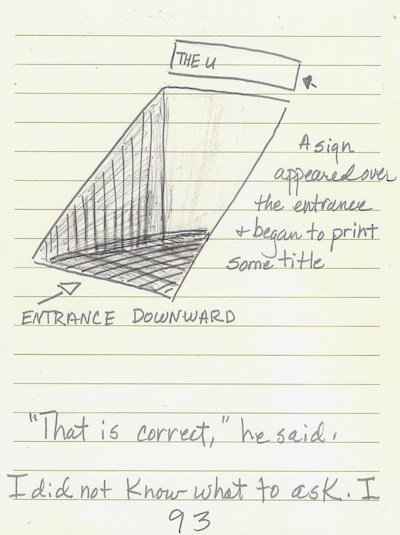 THE U
A sign
appeared over
the entrance
+ began to print
some title
ENTRANCE DOWNWARD
"That is correct," he said.
I did not know what to ask. I
93